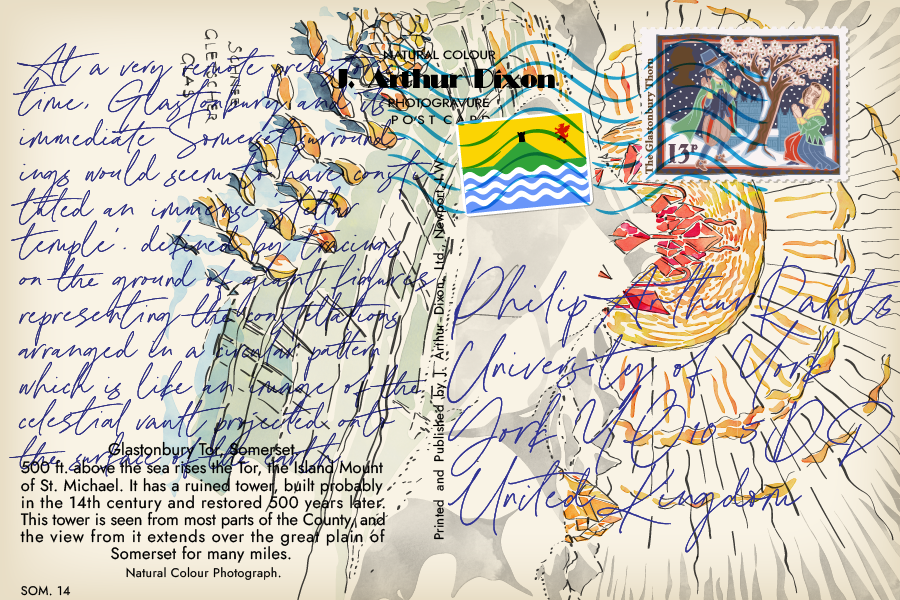 At a very remote
time, Glastonbury and its
immediate Somerset surround
ings would seem to have
tuted an immense 'stellar
temple'. defined by tracings
on the ground of giant figures
representing the constellations
arranged in a circular pattern
which is like an image of the
celestial vault projected onto
the surface of the earth
Glastonbury Tor, Somerset
500 ft. above the sea rises the Tor, the Island Mount
of St. Michael. It has a ruined tower, built probably
in the 14th century and restored 500 years later.
This tower is seen from most parts of the County, and
the view from it extends over the great plain of
Somerset for many miles.
Natural Colour Photograph.
SOM. 14
NATURAL COLOUR
J. Arthur Dixon
PHOTOGRAVURE
POSTCARD
Printed and Published by J. Arthur Dixon, Ltd., Newport, I.W.
The Glastonbury Thorn
13P
Philip Arthur Rahtz
University of York
York
United Kingdom